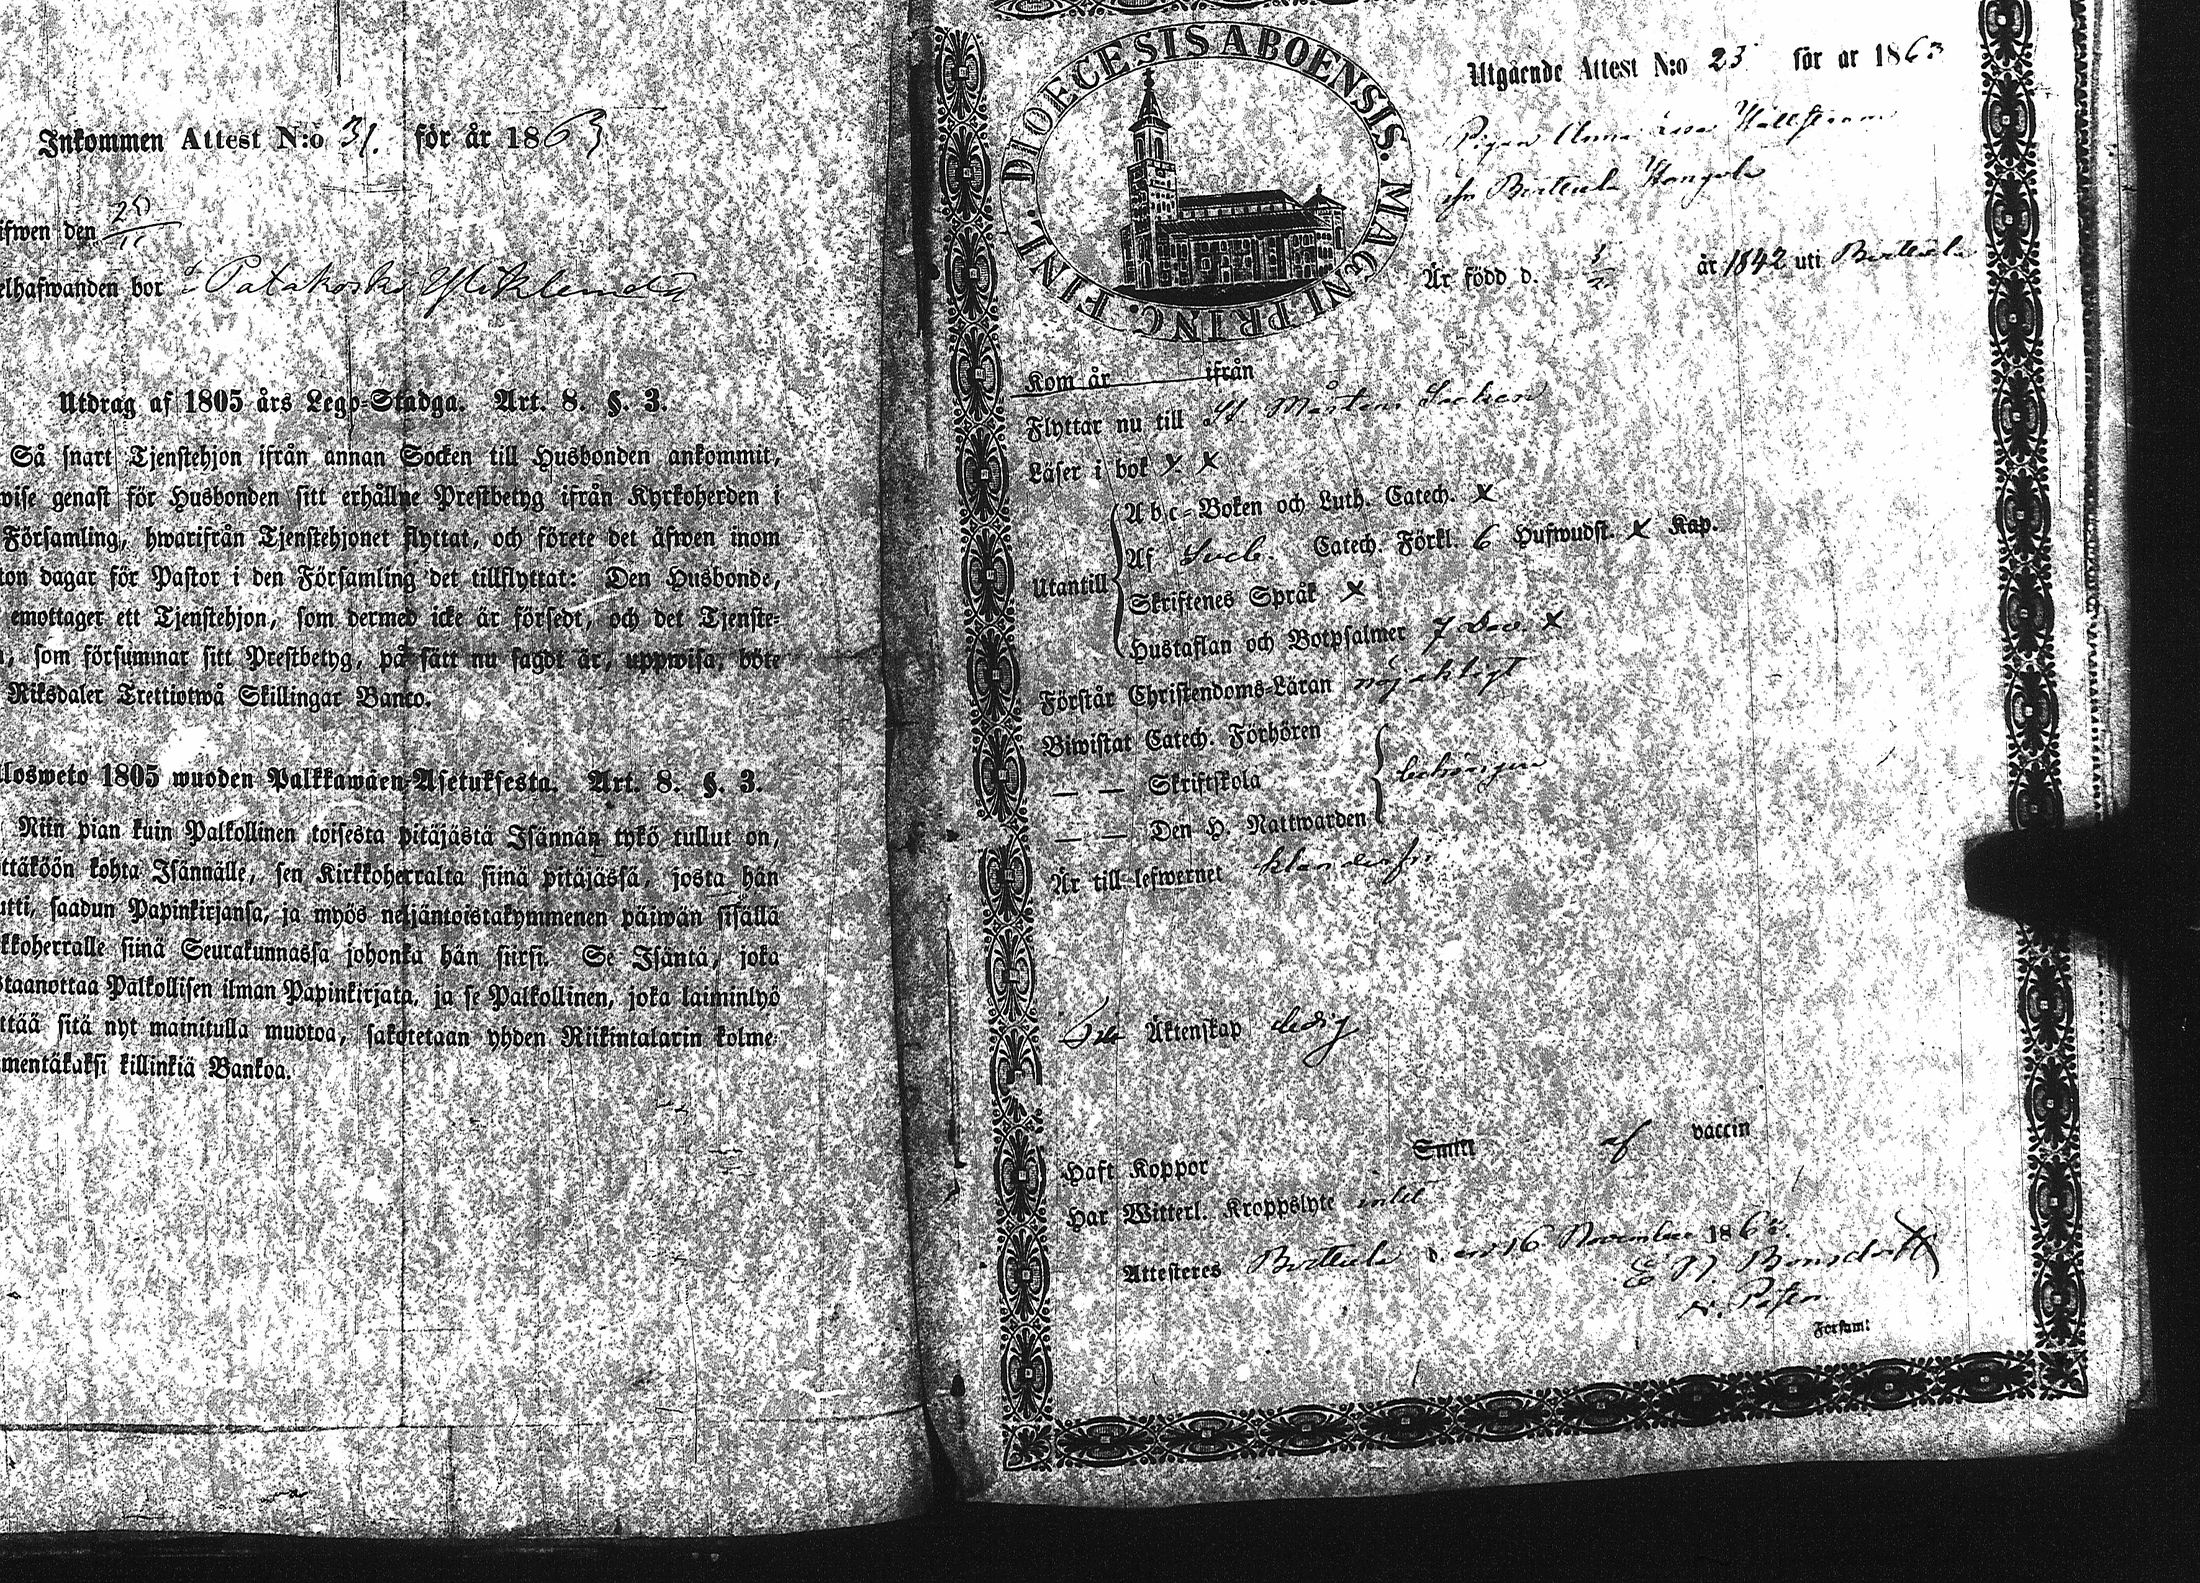 Inkommen Attest N:o 31. för år 1863
ifwen den 25/11
elhafwanden bor i Palakoski
Utdrag af 1805 års Lego-Stadga. Art. 8. §. 3.
Så snart Tjenstehjon ifrån annan Socken till Husbonden ankommit,
wise genast för Husbonden sitt erhållne Prestbetyg ifrån Kyrkoherden i
Församling, hwarifrån Tjenstehjonet flyttat, och förete det äfwen inom
ton dagar för Pastor i den Församling det tillflyttat: Den Husbonde,
emottager ett Tjenstehjon, som dermed icke är försedt, och det Tjenste-
n, som försummar sitt Prestbetyg, på sätt nu sagdt är, uppwisa, böte
Riksdaler Trettiotwå Skillingar Banco.
llosweto 1805 wuoden Palkkawäen-Asetuksesta. Art. 8. §. 3.
Niin pian kuin Palkollinen toisesta pitäjästä Isännän tykö tullut on,
ttäköön kohta Isännälle, sen Kirkkoherralta siinä pitäjässä, josta hän
utti, saadun Papinkirjansa, ja myös neljäntoistakymmenen päiwän sisällä
kkoherralle siinä Seurakunnassa johonka hän siirsi. Se Isäntä, joka
staanottaa Palkollisen ilman Papinkirjata, ja se Palkollinen, joka laiminlyö
ttää sitä nyt mainitulla muotoa, sakotetaan yhden Riikintalarin kolme-
mentäkaksi killinkiä Bankoa.
DIOECESIS ABOENSIS. MAGNI. PRINC. FINL.
Utgående Attest N:o 23 för år 1863
Pigan Anna Lisa Hällström
ifr Berttula Kangola
Är född d. år 1842 uti Berttula
Kom år ifrån
Flyttar nu till St Mårtens Socken
Läser i bok x x
Utantill
Abc-Boken och Luth. Catech. x
Af Sveb. Catech. Förkl. 6 Hufwudst. x Kap.
Skriftenes Språk x
Hustaflan och Botpsalmer 7 Dav. x
Förstår Christendoms-Läran nöjaktigt
Biwistat Catech. Förhören
— — Skriftskola behörigen
— — Den H. Nattwarden
Är till lefwernet klanderfri
Till Äktenskap ledig
Haft Koppor Smitt af vaccin
Har Witterl. Kroppslyte intet
Attesteres Berttula d. 16 November 1863.
E N Bonsdorff
v. Pastor
Forsaml